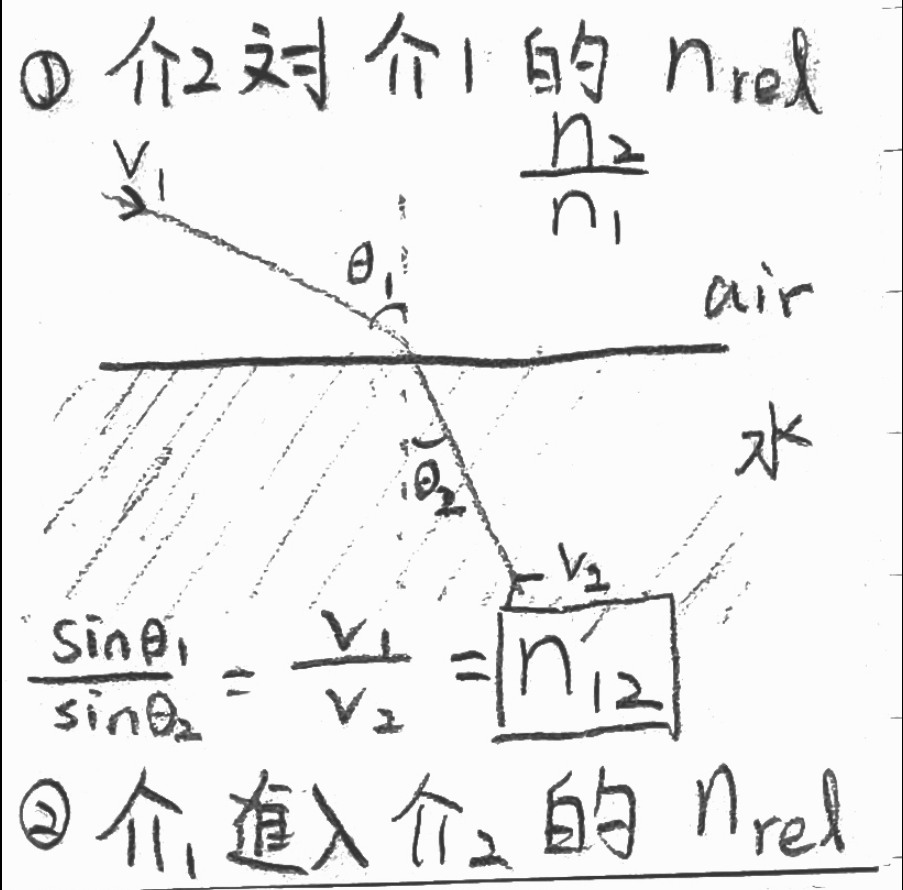 ① 介2対介1的 nrel
n2/n1
v1
θ1
air
水
θ2
v2
sinθ1/sinθ2 = v1/v2 = n12
② 介1進入介2的 nrel